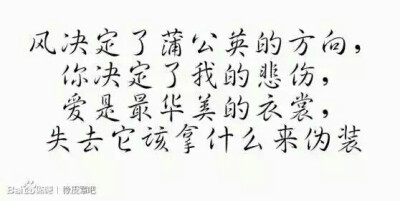 风决定了蒲公英的方向，
你决定了我的悲伤，
爱是最华美的衣裳，
失去它该拿什么来伪装
Bai贴吧 | 橡皮章吧